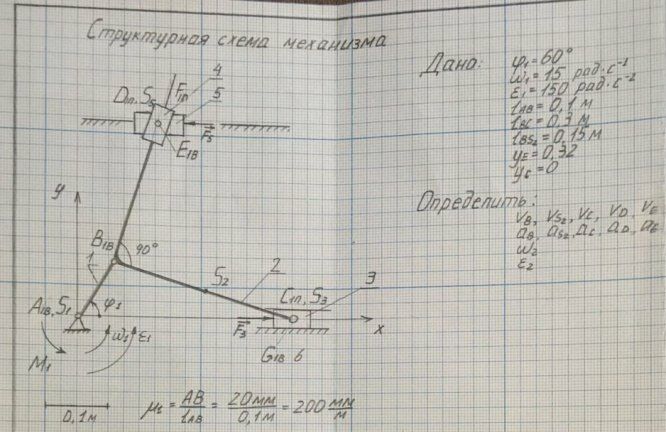 Структурная схема механизма
Дано:
φ1=60°
ω1=15 рад·с⁻¹
ε1=150 рад·с⁻²
lAB=0,1 м
lBC=0,3 м
lBS2=0,15 м
yE=0,32
yC=0
Определить:
VB, VS2, VC, VD, VE
aB, aS2, aC, aD, aE
ω2
ε2
4
5
F5
E1B
y
B1B
90°
1
S2
2
3
A1B, S1
φ1
C1П, S3
F3
x
ω1
ε1
M1
G1B 6
0,1м
μl = AB/lAB = 20мм/0,1м = 200 мм/м